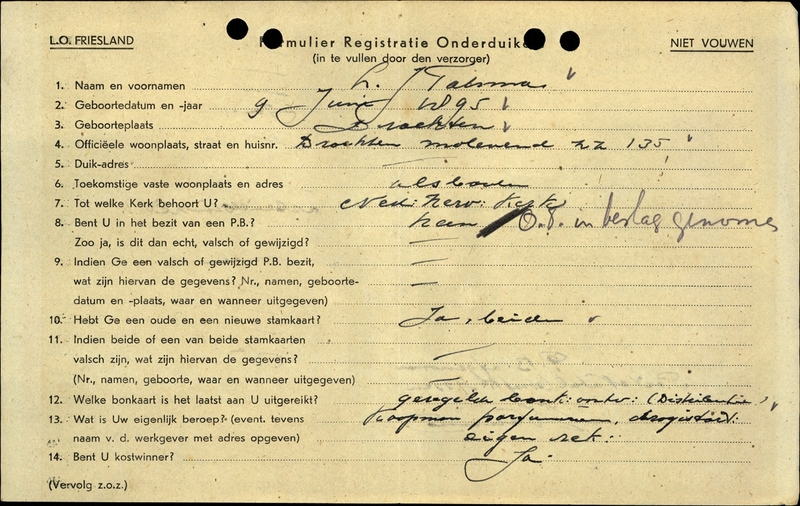 L.O. FRIESLAND
Formulier Registratie Onderduikers
NIET VOUWEN
(in te vullen door den verzorger)
1. Naam en voornamen L. J Talsma
2. Geboortedatum en -jaar 9 Juni 1895
3. Geboorteplaats Drachten
4. Officiëele woonplaats, straat en huisnr. Drachten molenend nz 135
5. Duik-adres —
6. Toekomstige vaste woonplaats en adres als boven
7. Tot welke Kerk behoort U? Ned: Herv: Kerk
8. Bent U in het bezit van een P.B.? in beslag genomen
Zoo ja, is dit dan echt, valsch of gewijzigd? —
9. Indien Ge een valsch of gewijzigd P.B. bezit, —
wat zijn hiervan de gegevens? Nr., namen, geboorte- —
datum en -plaats, waar en wanneer uitgegeven)
10. Hebt Ge een oude en een nieuwe stamkaart? Ja, beide
11. Indien beide of een van beide stamkaarten
valsch zijn, wat zijn hiervan de gegevens? —
(Nr., namen, geboorte, waar en wanneer uitgegeven) —
12. Welke bonkaart is het laatst aan U uitgereikt? geregeld (Distributie)
13. Wat is Uw eigenlijk beroep? (event. tevens Koopman parfumerien,
naam v. d. werkgever met adres opgeven) eigen
14. Bent U kostwinner? Ja
(Vervolg z.o.z.)